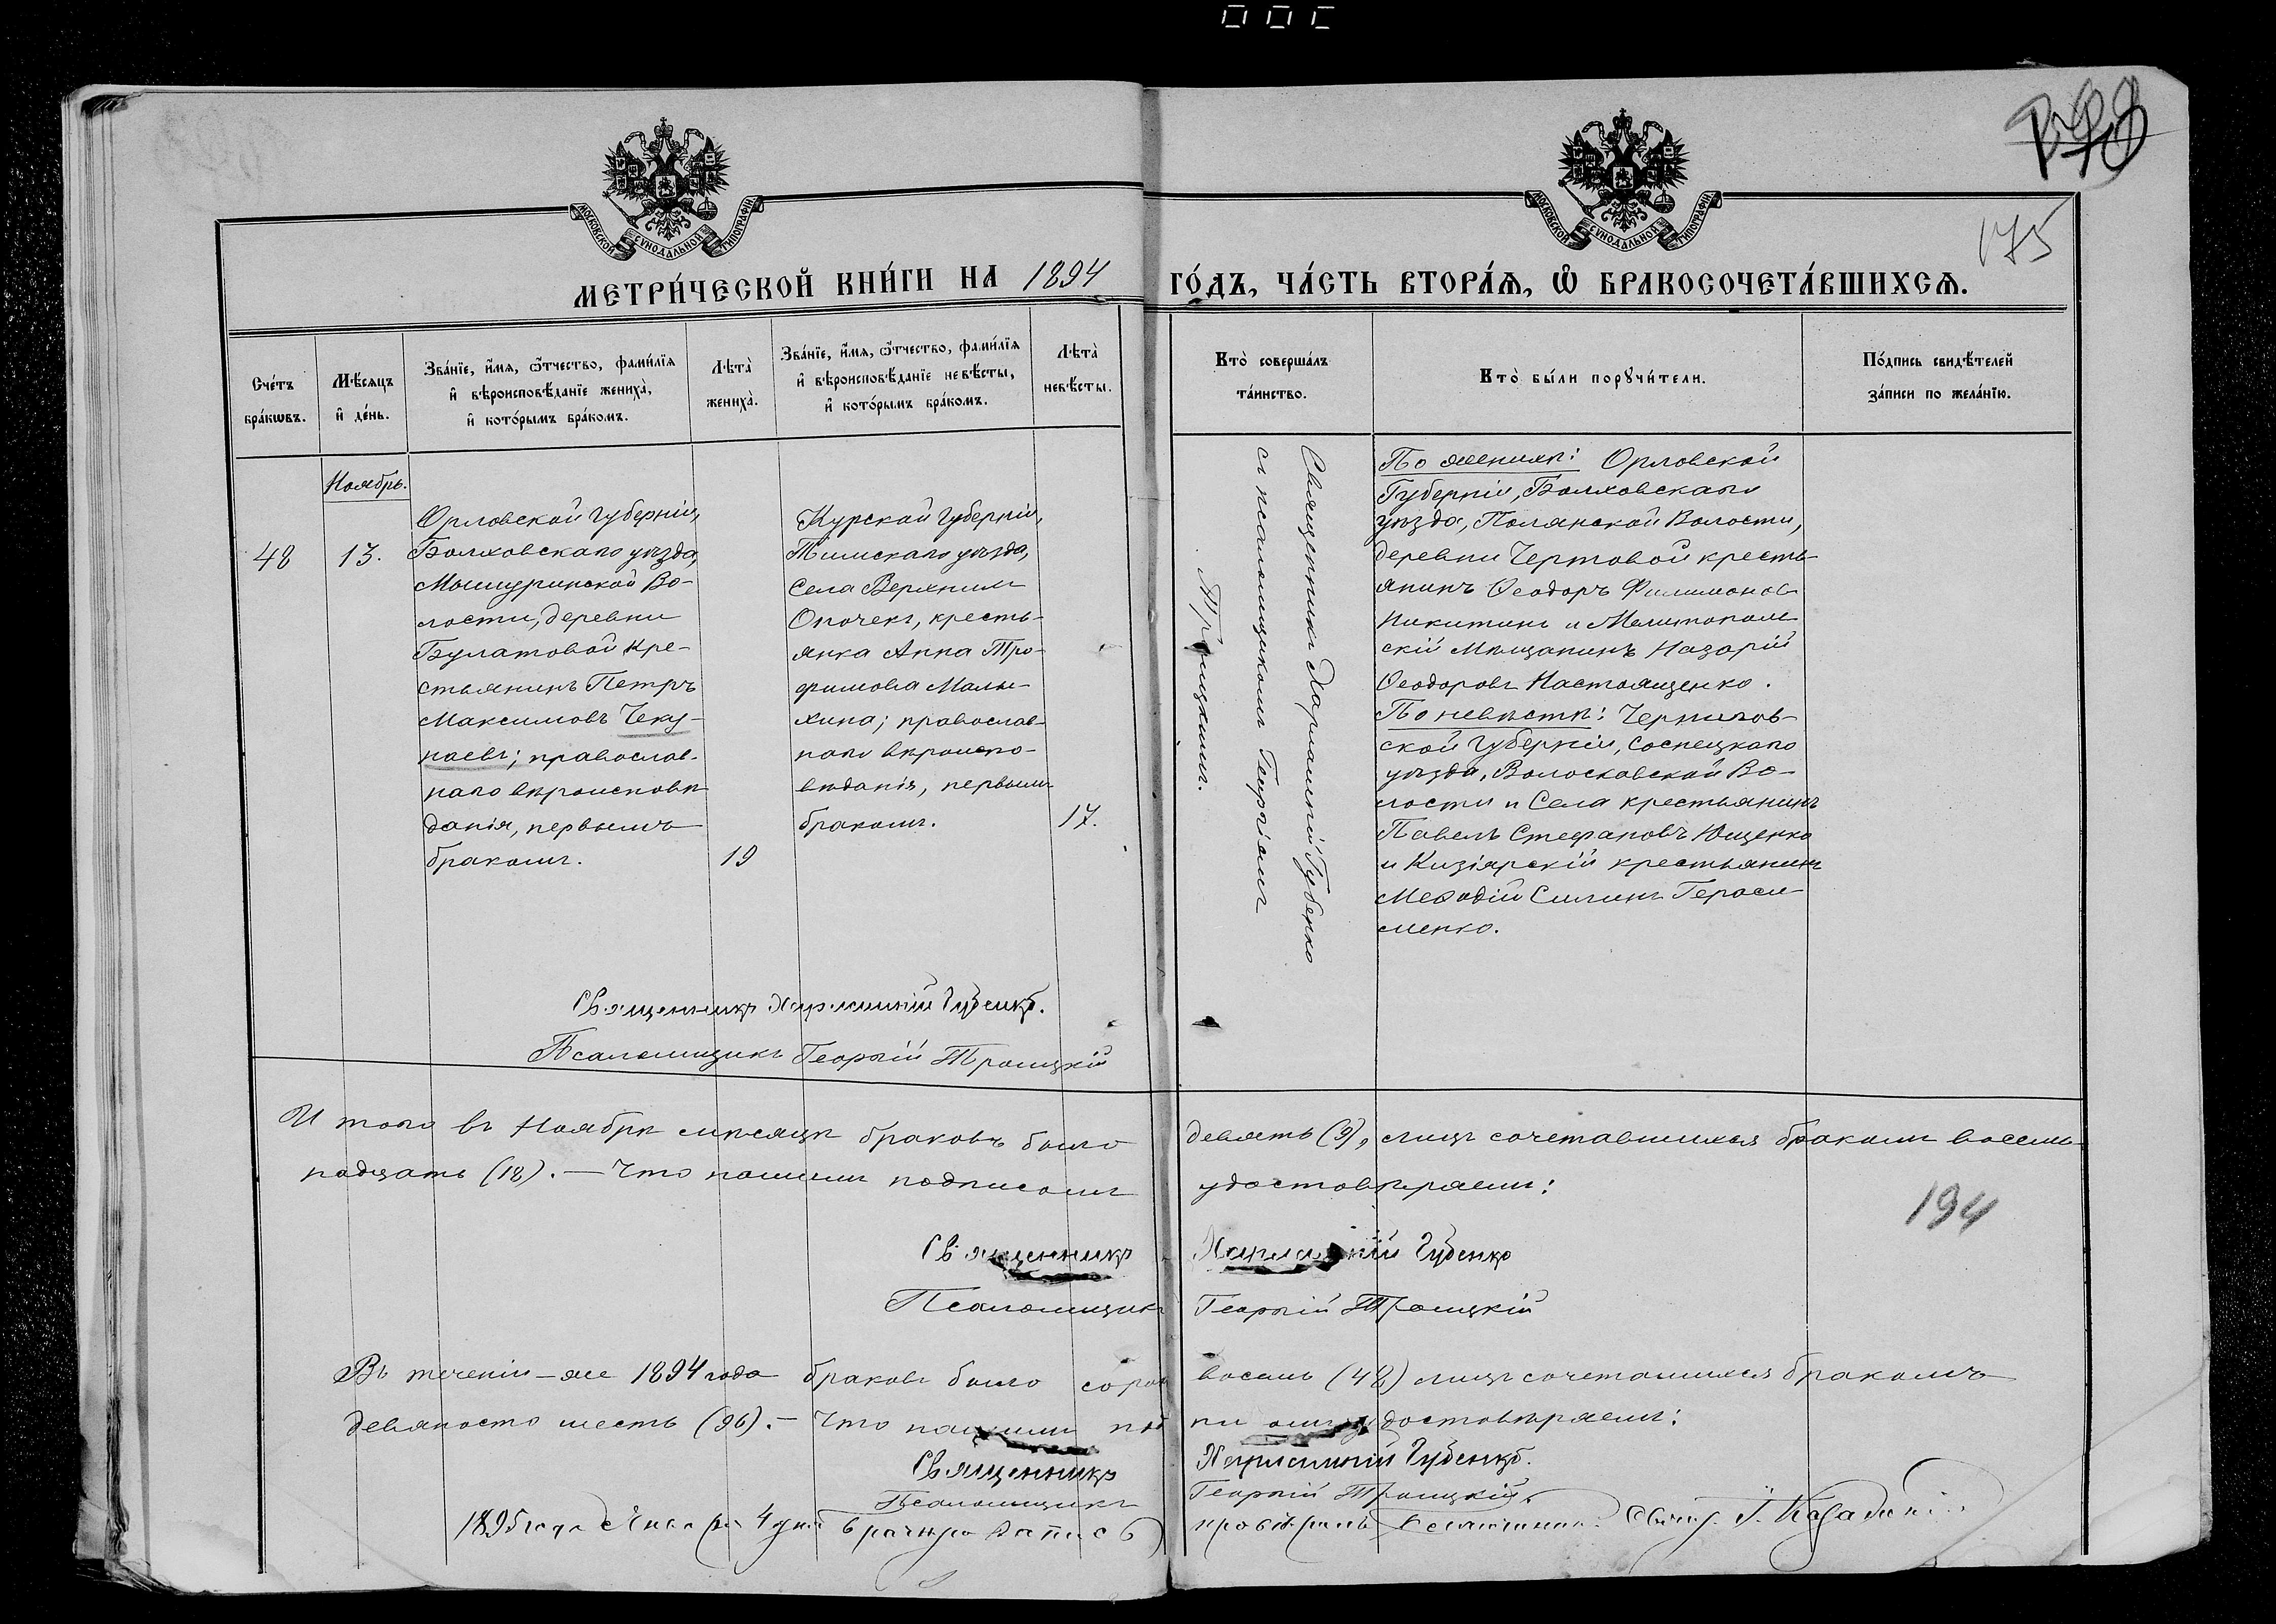 175
МОСКОВСКОЙ СѴНОДАЛЬНОЙ ТИПОГРАФІИ
МОСКОВСКОЙ СѴНОДАЛЬНОЙ ТИПОГРАФІИ
МЕТРИ́ЧЕСКОЙ КНИ́ГИ НА 1894 ГО́ДЪ, ЧА́СТЬ ВТОРА́Ѧ, Ѽ БРАКОСОЧЕТА́ВШИХСѦ.
Сче́тъ
бра́кѡвъ.
Мѣ́сѧцъ
и҆ де́нь.
Зва́нїе, и҆́мѧ, ѻ҆́тчество, фамѝлїѧ
и҆ вѣроисповѣ́данїе жениха̀,
и҆ кото́рымъ бра́комъ.
Лѣта̀
жениха̀.
Зва́нїе, и҆́мѧ, ѻ҆́тчество, фамѝлїѧ
и҆ вѣроисповѣ́данїе невѣ́сты,
и҆ кото́рымъ бра́комъ.
Лѣта̀
невѣ́сты.
Кто̀ соверша́лъ
та́инство.
Кто̀ бы́ли порꙋчи́тели.
По́дпись свидѣ́телей
за́писи по жела́нїю.
Ноябрь.
48
13.
Орловской Губерніи,
Болховскаго уѣзда,
Мышуринской Во-
лости, деревни
Булатовой Кре-
стьянинъ Петръ
Максимовъ Чеку-
наевъ; православ-
наго вѣроисповѣ-
данія, первымъ
бракомъ.
19
Курской Губерніи,
Тимскаго уѣзда,
Села Верхнихъ
Опочекъ, кресть-
янка Анна Тро-
фимова Малы-
хина; православ-
наго вѣроиспо-
вѣданія, первымъ
бракомъ.
17.
Священникъ Харлампій Губенко
съ псаломщикомъ Георгіемъ
Троицкимъ.
По женихѣ: Орловской
Губерніи, Болховскаго
уѣзда, Полянской Волости,
деревни Чертовой кресть-
янинъ Ѳеодоръ Филимоновъ
Никитинъ и Мелитополь-
скій Мѣщанинъ Назарій
Ѳеодоровъ Настоященко.
По невѣстѣ: Чернигов-
ской Губерніи, Сосницкаго
уѣзда, Волосковской Во-
лости и Села крестьянинъ
Павелъ Стефановъ Ющенко
и Кизіярскій крестьянинъ
Меѳодій Силинъ Гераси-
менко.
Священникъ Харлампій Губенко.
Псаломщикъ Георгій Троицкій
Итого въ Ноябрѣ мѣсяцѣ браковъ было девять (9), лицъ сочетавшихся бракомъ восем-
надцать (18). — Что нашими подписями удостовѣряемъ:
194
Священникъ Харлампій Губенко
Псаломщикъ Георгій Троицкій
Въ теченіи-же 1894 года браковъ было сорок восемь (48) лицъ сочетавшихся бракомъ
девяносто шесть (96). — Что нашими под удостовѣряемъ:
Священникъ Харлампій Губенко.
Псаломщикъ Георгій Троицкій
1895 года Января 4 дня брачную запись провѣрилъ